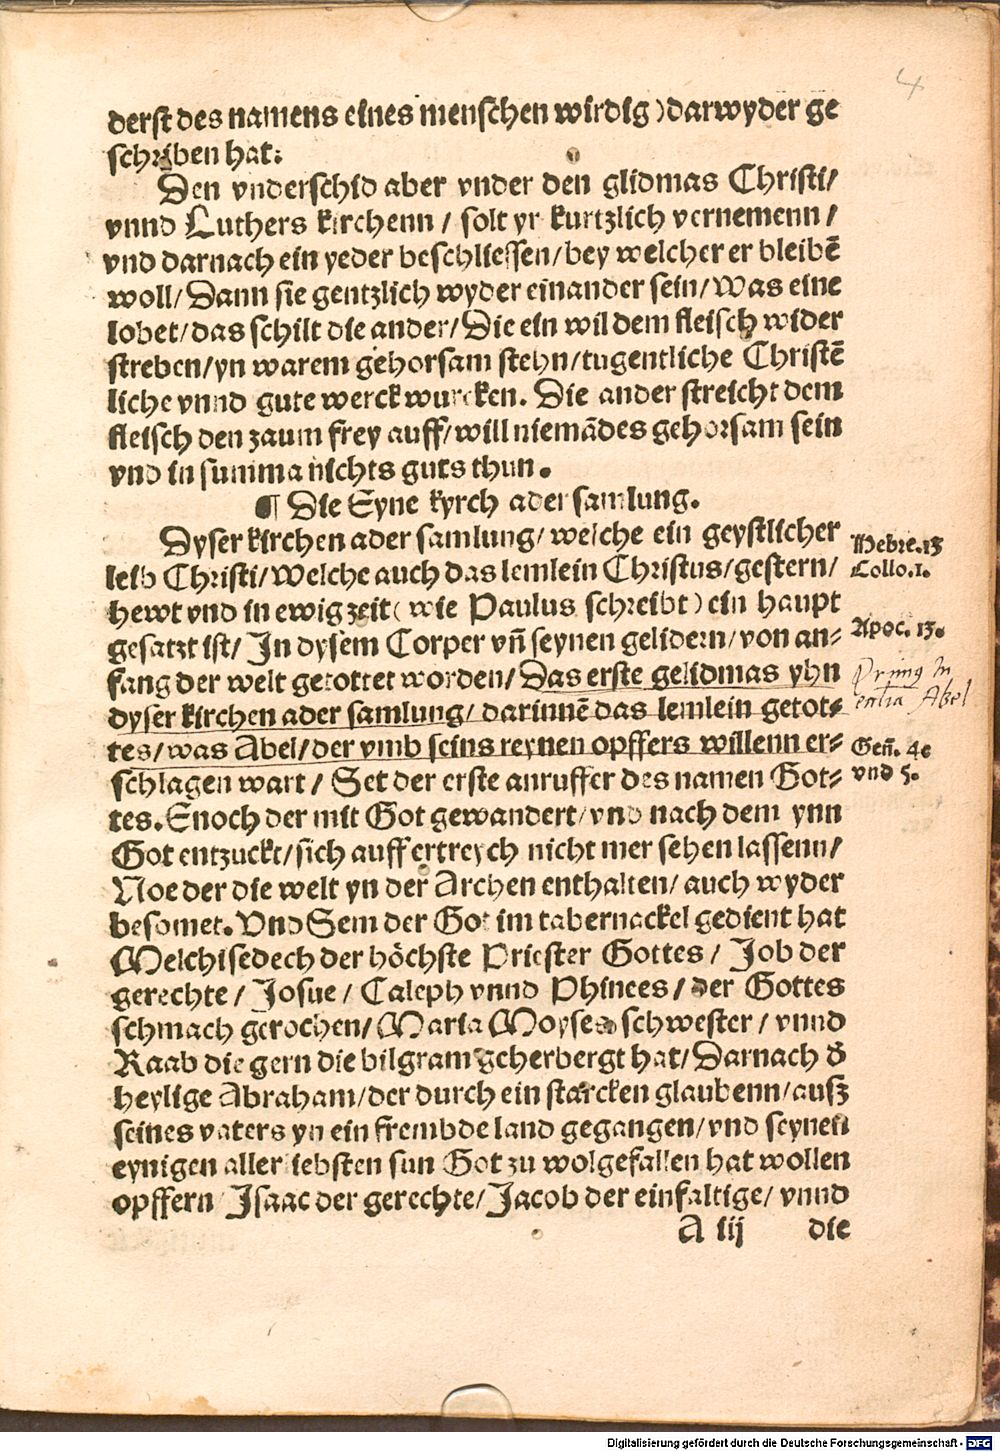 4
derst des namens eines menschen wirdig) darwyder ge
schriben hat:
Den vnderschid aber vnder den glidmas Christi/
vnnd Luthers kirchenn / solt yr kurtzlich vernemenn /
vnd darnach ein yeder beschliessen/ bey welcher er bleibē
woll/ Dann sie gentzlich wyder einander sein/ Was eine
lobet/ das schilt die ander/ Die ein wil dem fleisch wider
streben/ yn warem gehorsam stehn/ tugentliche Christē
liche vnnd gute werck wurcken. Die ander streicht dem
fleisch den zaum frey auff/ will niemādes gehorsam sein
vnd in summa nichts guts thun.
¶ Die Eyne kyrch ader samlung.
Dyser kirchen ader samlung/ welche ein geystlicher
leib Christi/ Welche auch das lemlein Christus/ gestern/
hewt vnd in ewig zeit ( wie Paulus schreibt ) ein haupt
gesatzt ist/ In dysem Corper vñ seynen gelidern/ von an-
fang der welt getottet worden/ Das erste gelidmas yhn
dyser kirchen ader samlung/ darinnē das lemlein getot-
tes/ was Abel/ der vmb seins reynen opffers willenn er-
schlagen wart / Set der erste anruffer des namen Got-
tes. Enoch der mit Got gewandert/ vnd nach dem ynn
Got entzuckt/ sich auff ertreych nicht mer sehen lassenn/
Noe der die welt yn der Archen enthalten/ auch wyder
besomet. Vnd Sem der Got im tabernackel gedient hat
Melchisedech der höchste Priester Gottes / Job der
gerechte / Josue / Caleph vnnd Phinees / der Gottes
schmach gerochen/ Maria Moyses schwester / vnnd
Raab die gern die bilgram geherbergt hat/ Darnach d̄
heylige Abraham/ der durch ein starcken glaubenn/ ausz
seines vaters yn ein frembde land gegangen/ vnd seynen
eynigen allerliebsten sun Got zu wolgefallen hat wollen
opffern Isaac der gerechte/ Jacob der einfaltige/ vnnd
A iij die
Hebre. 13
Collo. 1.
Apoc. 13.
Primus
Abel
Geñ. 4e
vnd 5.
Digitalisierung gefördert durch die Deutsche Forschungsgemeinschaft - DFG